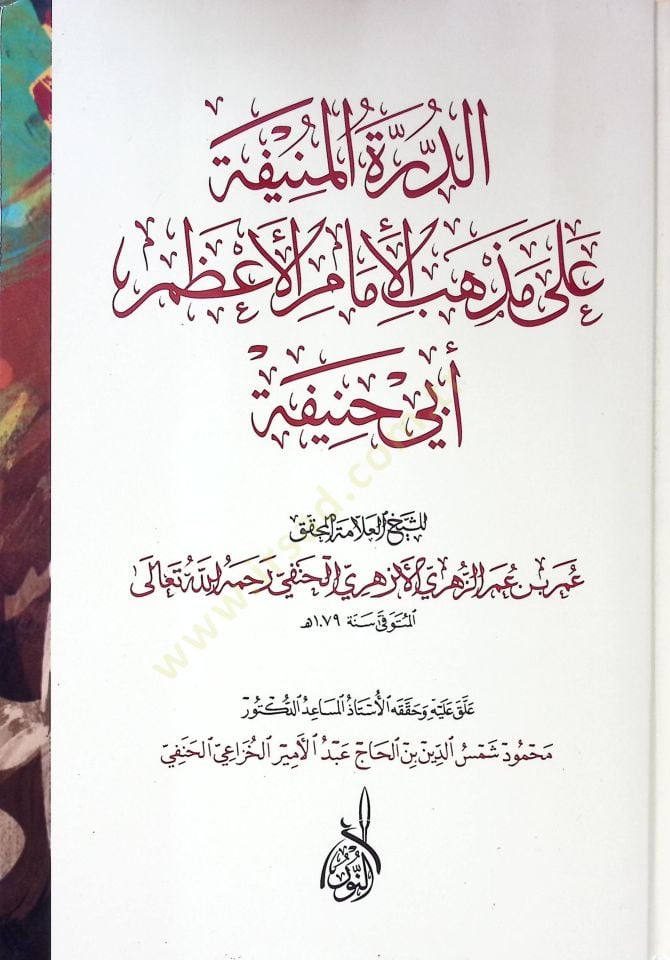 الدُّرَّةُ المُنِيفَة
عَلَى مَذْهَبِ الإِمَامِ الأَعْظَمِ
أَبِي حَنِيفَة
للشيخ العلامة المحقق
عُمَر بن عُمَر الزُّهريّ الأزهريّ الحنفيّ رَحِمَهُ اللهُ تَعَالَى
المُتَوَفَّى سَنَة ١٠٧٩هـ
عَلَّقَ عَلَيْهِ وَحَقَّقَه الأُسْتَاذُ المُسَاعِدُ الدُّكْتُور
مَحْمُود شَمْسُ الدِّين بن الحَاج عَبْدُ الأَمِير الخُزَاعِيّ الحَنَفِيّ
النُّور